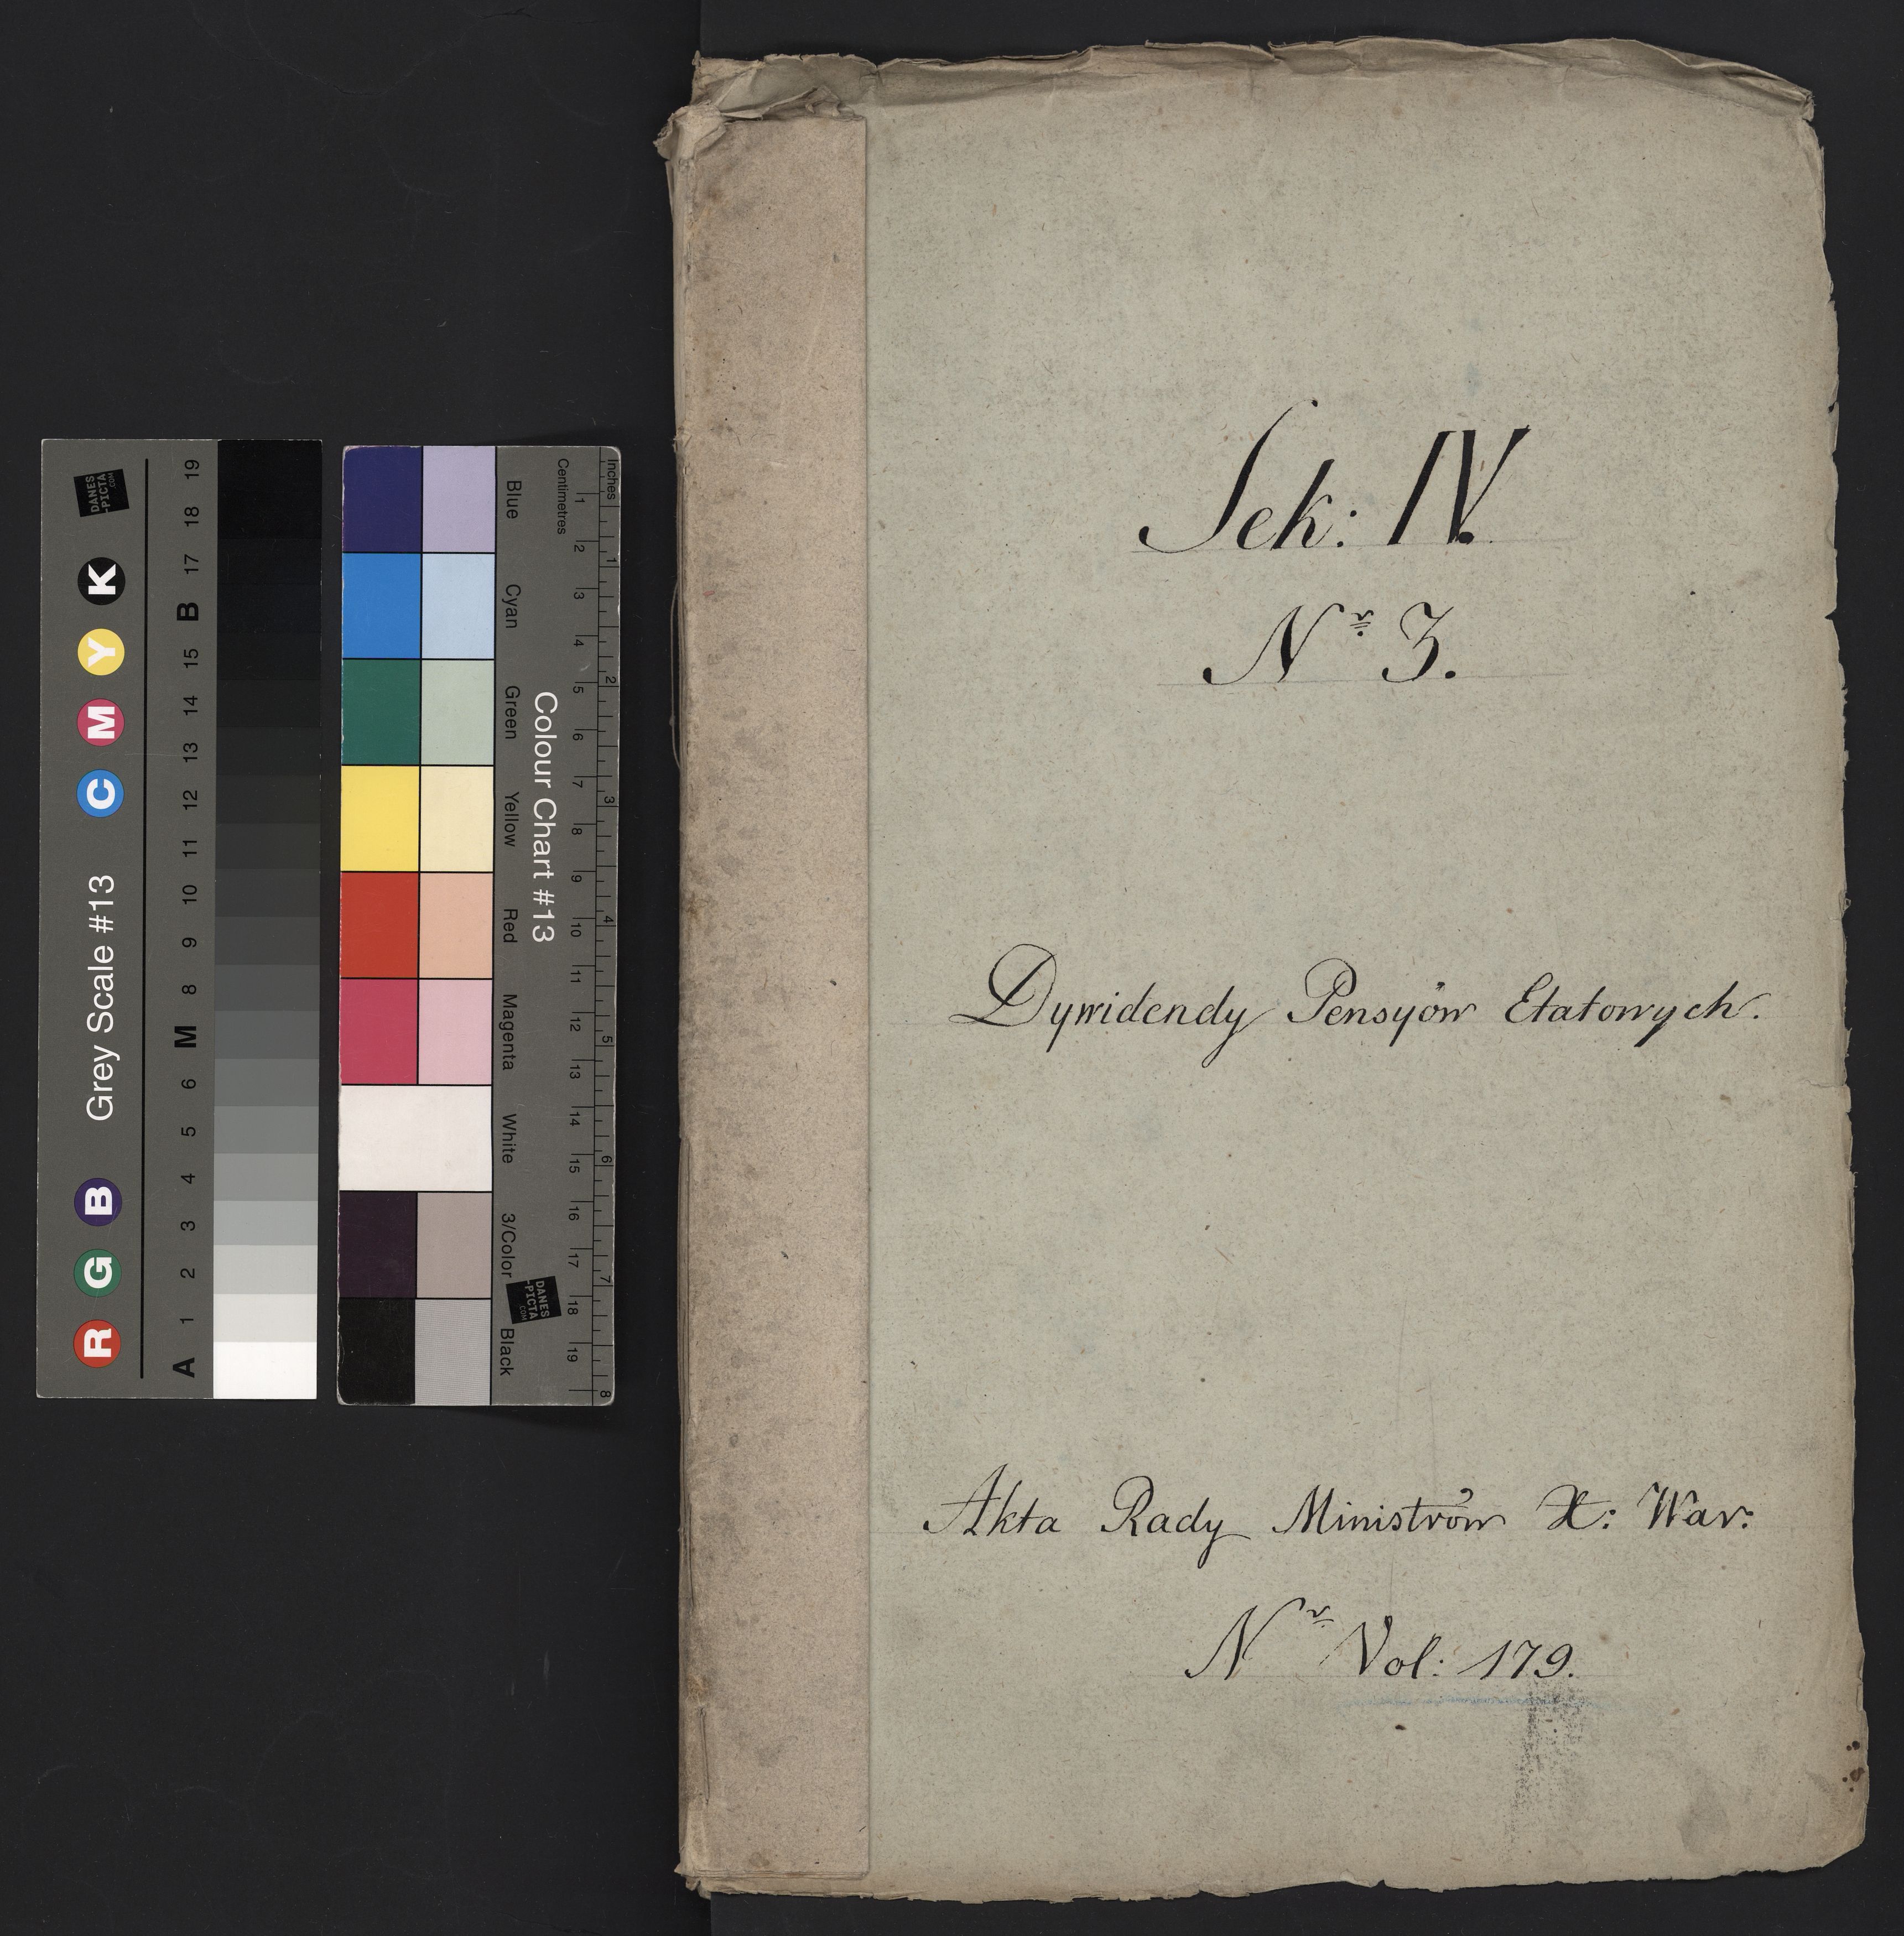 Sek: IV.
Nr 3.
Dywidendy Pensyów Etatowych.
Akta Rady Ministrów X: War:
Nr Vol: 179.
Grey Scale #13
R G B C M Y K
A 1 2 3 4 5 6 M 8 9 10 11 12 13 14 15 B 17 18 19
DANES
-PICTA
.COM
Colour Chart #13
Blue Cyan Green Yellow Red Magenta White 3/Color Black
Centimetres 1 2 3 4 5 6 7 8 9 10 11 12 13 14 15 16 17 18 19
Inches 1 2 3 4 5 6 7 8
DANES
-PICTA
.COM